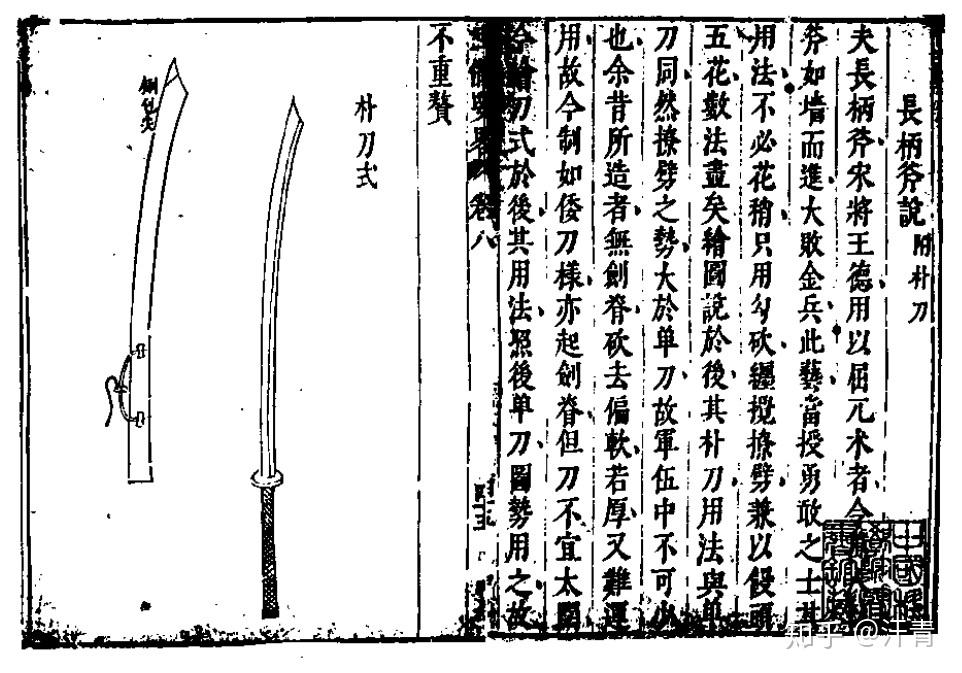 長柄斧說附朴刀
夫長柄斧宋將王德用以屈兀朮者今
斧如墻而進大敗金兵此藝當授勇敢之士其
用法不必花稍只用勾砍纏攪撩劈兼以饅頭
五花數法盡矣繪圖說於後其朴刀用法與單
刀同然撩劈之勢大於单刀故軍伍中不可少
也余昔所造者無劍脊砍去偏軟若厚又難運
用故今制如倭刀樣亦起劍脊但刀不宜太闊
今繪刀式於後其用法照後单刀圖勢用之故
武備要畧 卷八
不重贅
朴刀式
銅包尖
知乎 @汗青